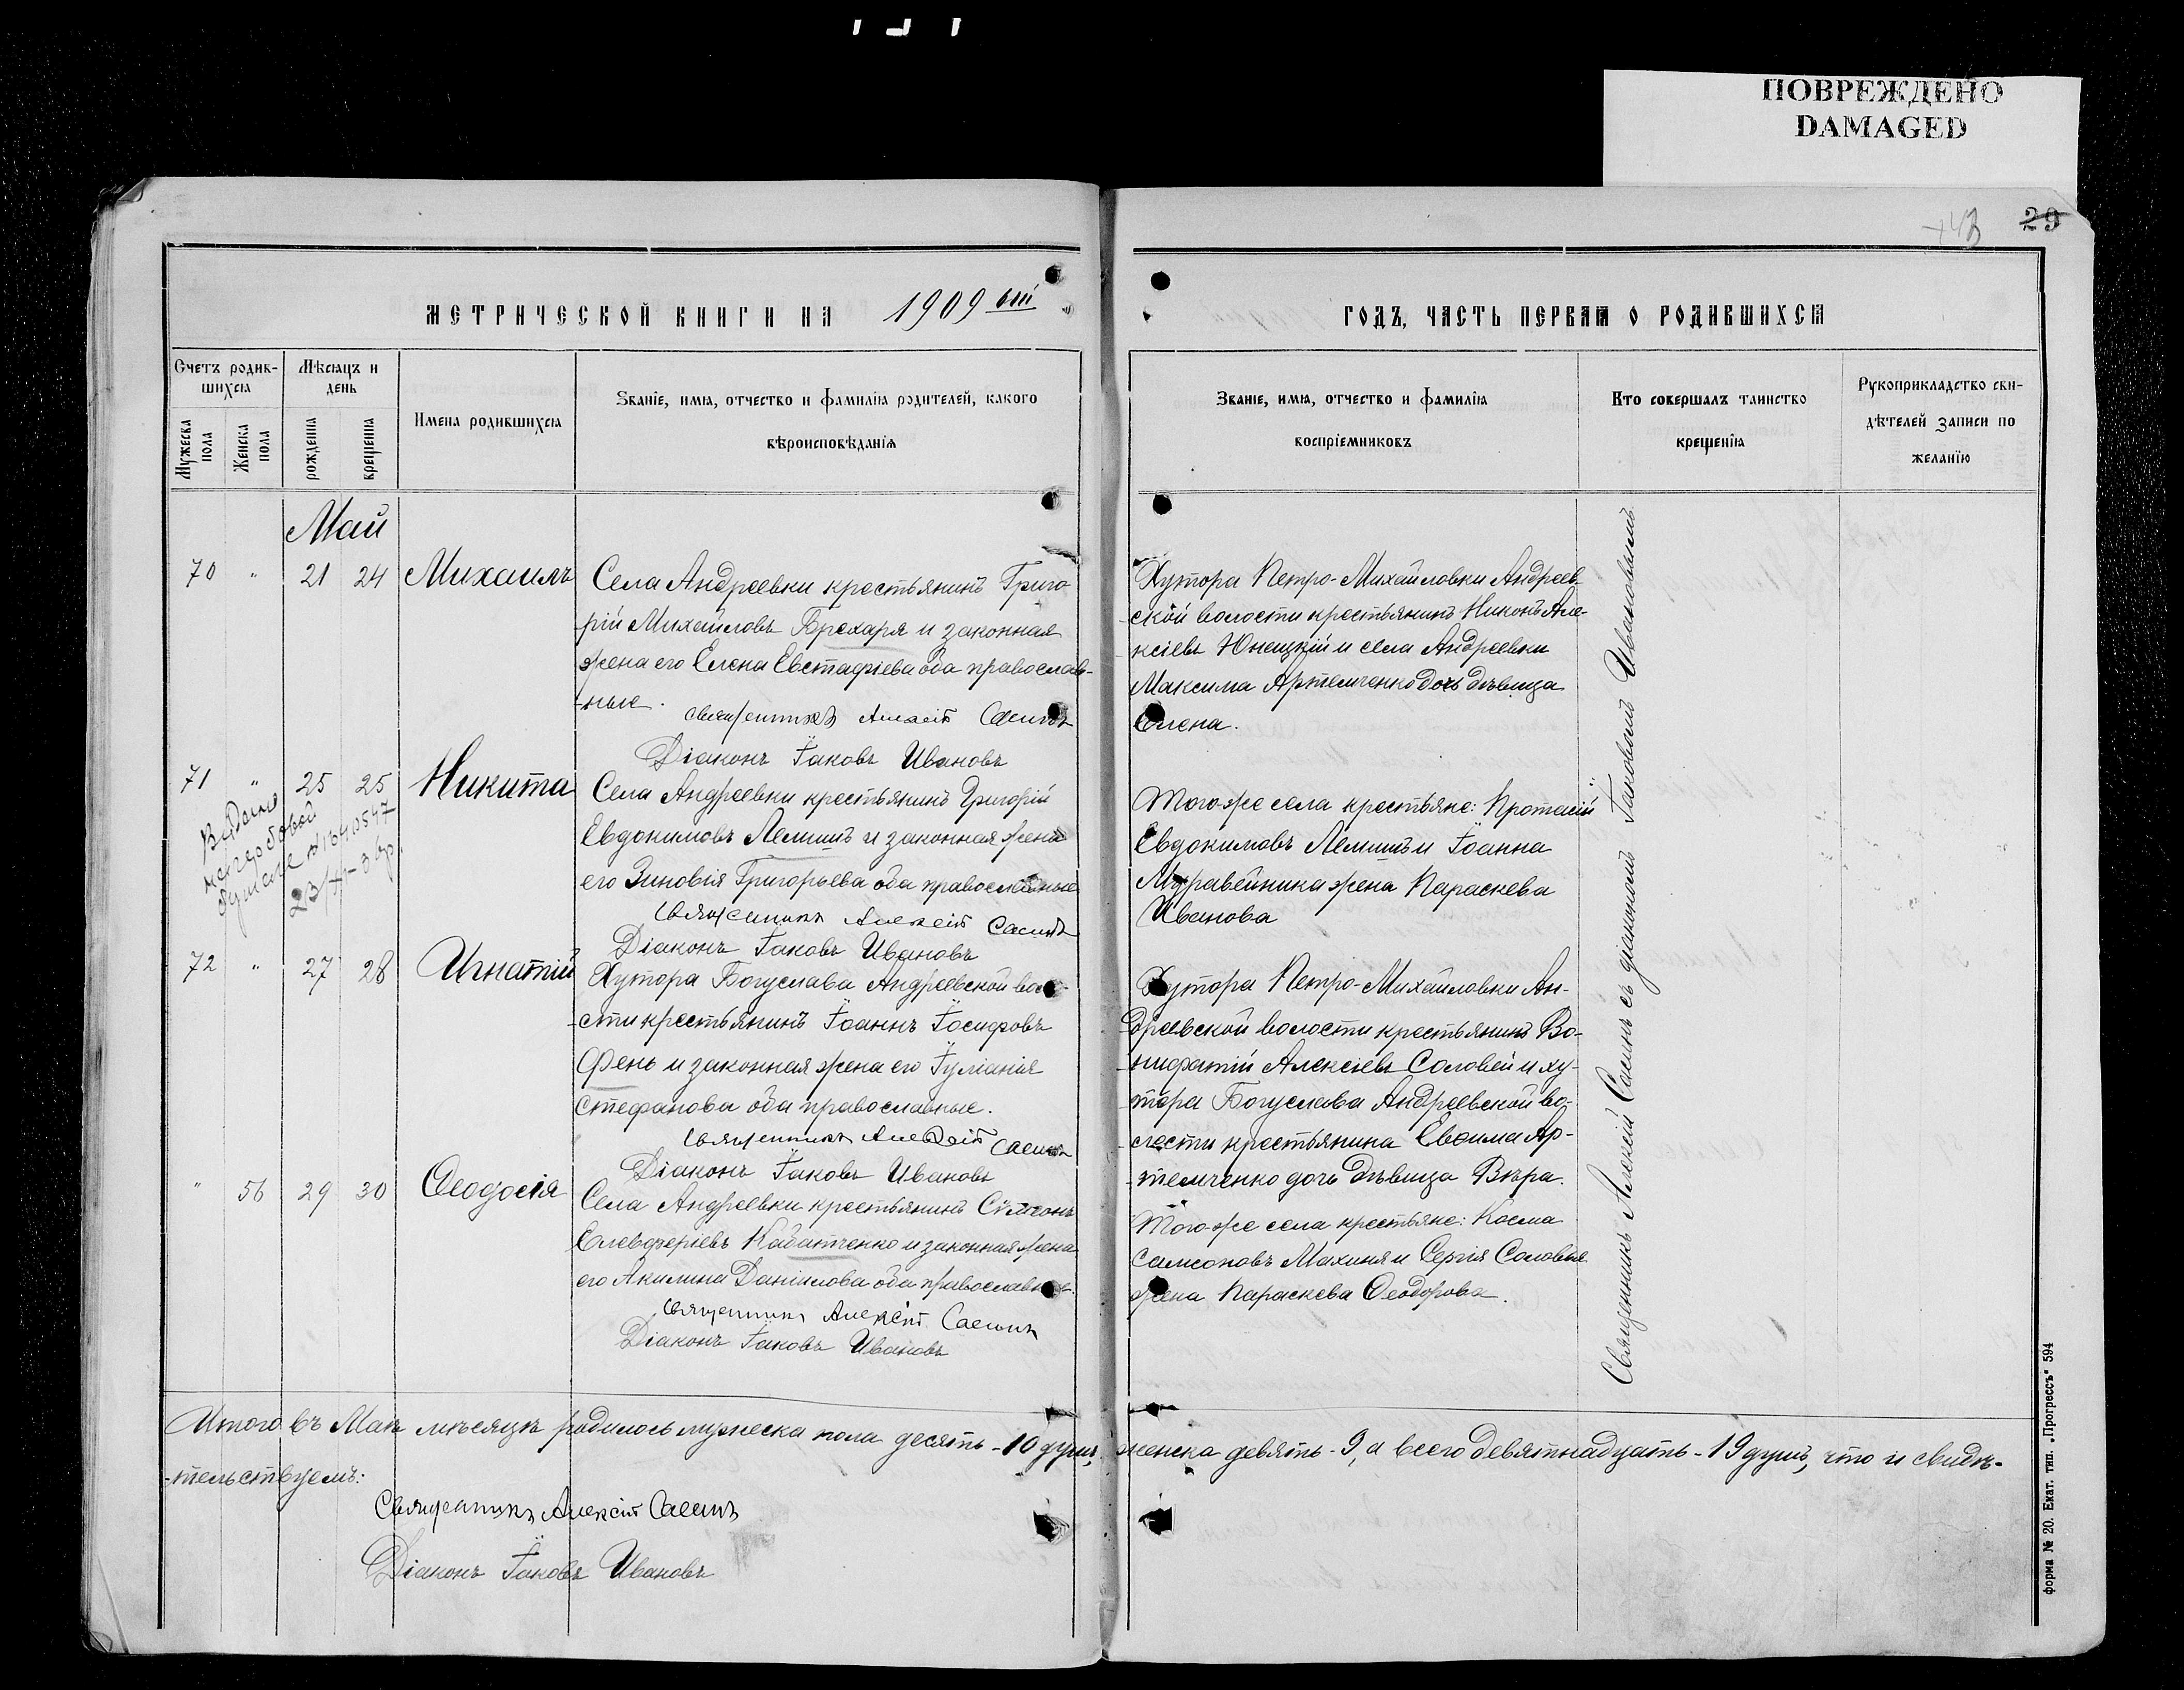 ПОВРЕЖДЕНО
DAMAGED
29
МЕТРИЧЕСКОЙ КНИГИ НА 1909 ый
ГОДЪ, ЧАСТЬ ПЕРВАЯ О РОДИВШИХСЯ
Счетъ родив-
шихся
Мужеска пола
Женска пола
Мѣсяцъ и
день
рожденія
крещенія
Имена родившихся
Званіе, имя, отчество и фамилія родителей, какого
вѣроисповѣданія
Званіе, имя, отчество и фамилія
воспріемниковъ
Кто совершалъ таинство
крещенія
Рукоприкладство сви-
дѣтелей записи по
желанію
Май
70 " 21 24 Михаилъ
Села Андреевки крестьянинъ Григо
рій Михайловъ Брехаря и законная
жена его Елена Евстафіева оба православ-
ные.
Священникъ Алексій Саенъ
Діаконъ Іаковъ Ивановъ
Хутора Петро-Михайловки Андреев-
ской волости крестьянинъ Никонъ Але-
ксіевъ Юнецкій и села Андреевки
Максима Артемченко дочь дѣвица
Елена.
71 " 25 25 Никита
Выдано
23/
Села Андреевки крестьянинъ Григорій
Евдокимовъ Лемишъ и законная жена
его Зиновія Григорьева оба православные
Священникъ Алексій Саенъ
Діаконъ Іаковъ Ивановъ
Того-же села крестьяне: Протасій
Евдокимовъ Лемишъ и Іоанна
Муравейника жена Параскева
Иванова
72 " 27 28 Игнатій
Хутора Богуслава Андреевской воло-
сти крестьянинъ Іоаннъ Іосифовъ
Фень и законная жена его Іуліанія
Стефанова оба православные.
Священникъ Алексій Саенъ
Діаконъ Іаковъ Ивановъ
Хутора Петро-Михайловки Ан-
дреевской волости крестьянинъ Во-
нифатій Алексіевъ Соловей и ху-
тора Богуслава Андреевской во-
лости крестьянина Евфима Ар-
темченко дочь дѣвица Вѣра.
" 56 29 30 Ѳеодосія
Села Андреевки крестьянинъ Сѵмеонъ
Елевферіевъ Кабатченко и законная жена
его Акилина Даніилова оба православные.
Священникъ Алексій Саенъ
Діаконъ Іаковъ Ивановъ
Того-же села крестьяне: Косма
Самсоновъ Махиня и Сергія Соловья
жена Параскева Ѳеодорова.
Священникъ Алексій Саенъ съ діакономъ Іаковомъ Ивановымъ
Итого въ Маѣ мѣсяцѣ родилось мужеска пола десять - 10 душъ, женска девять - 9, а всего девятнадцать - 19 душъ, что и свидѣ-
-тельствуемъ:
Священникъ Алексій Саенъ
Діаконъ Іаковъ Ивановъ
Форма № 20. Екат. тип. „Прогрессъ" 594